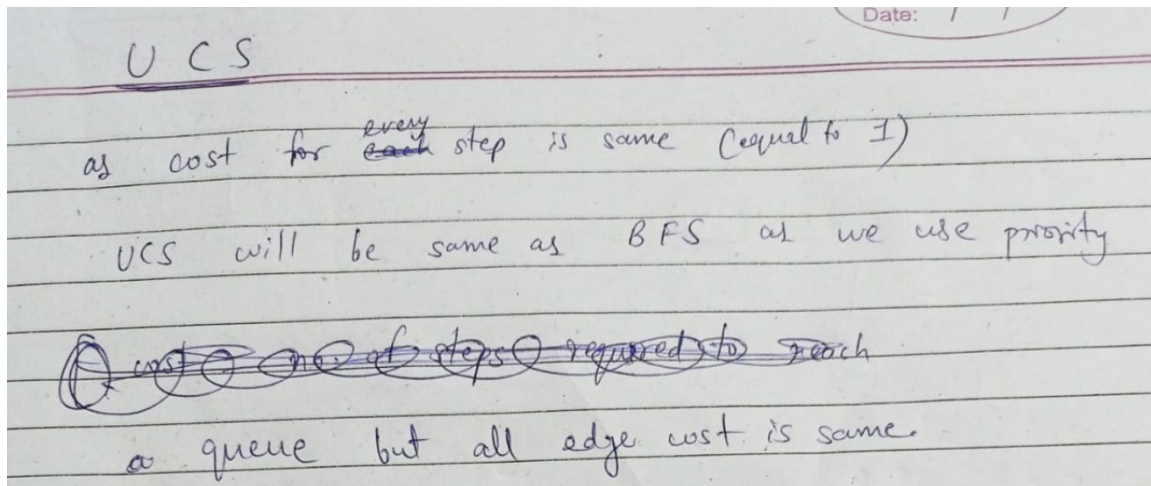 Date: / /
UCS
as cost for every step is same (equal to 1)
UCS will be same as BFS as we use priority
cost no. of steps required to reach
a queue but all edge cost is same.